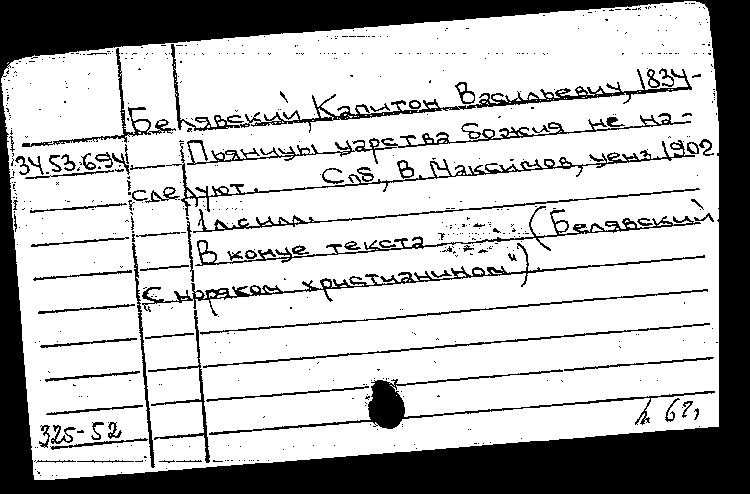 Белявский, Капитон Васильевич, 1834-
34.53.6.94 Пьяницы царства божия не на-
следуют. Спб., В. Максимов, ценз. 1902.
1 л. с илл.
В конце текста (Белявский
"С христианином").
325-52